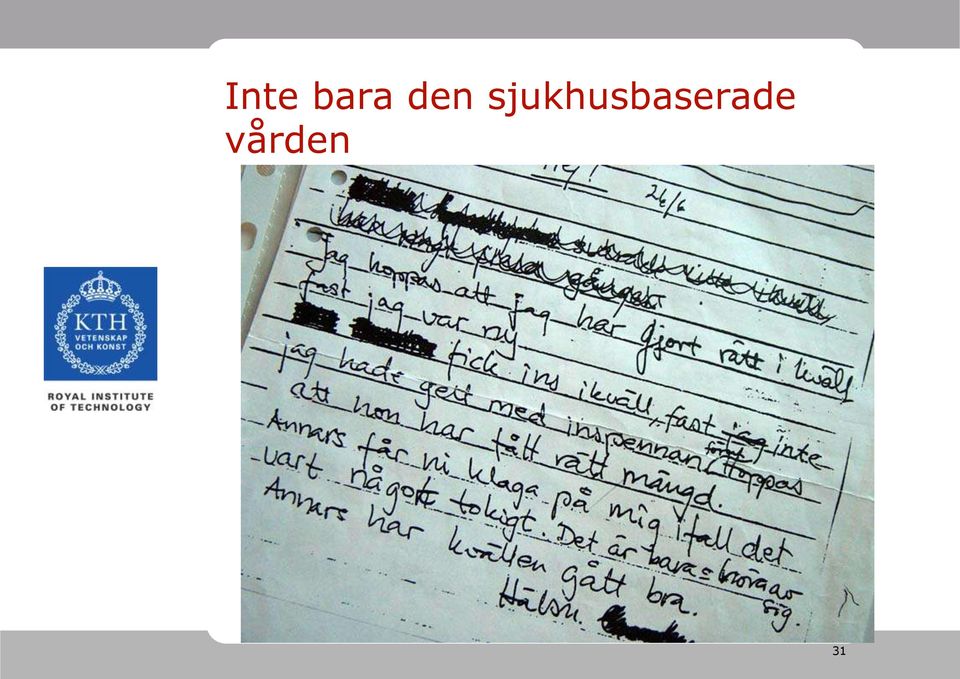 Inte bara den sjukhusbaserade
vården
Hej!
26/6
gånger ikväll
Jag hoppas att jag har gjort rätt i kväll
fast jag var ny
fick ins ikväll, fast jag inte
jag hade gett med inspennan. Hoppas
att hon har fått rätt mängd.
Annars får ni klaga på mig ifall det
vart något tokigt. Det är bara höra av
sig.
Annars har kvällen gått bra.
Hälsn.
KTH
VETENSKAP
OCH KONST
ROYAL INSTITUTE
OF TECHNOLOGY
31